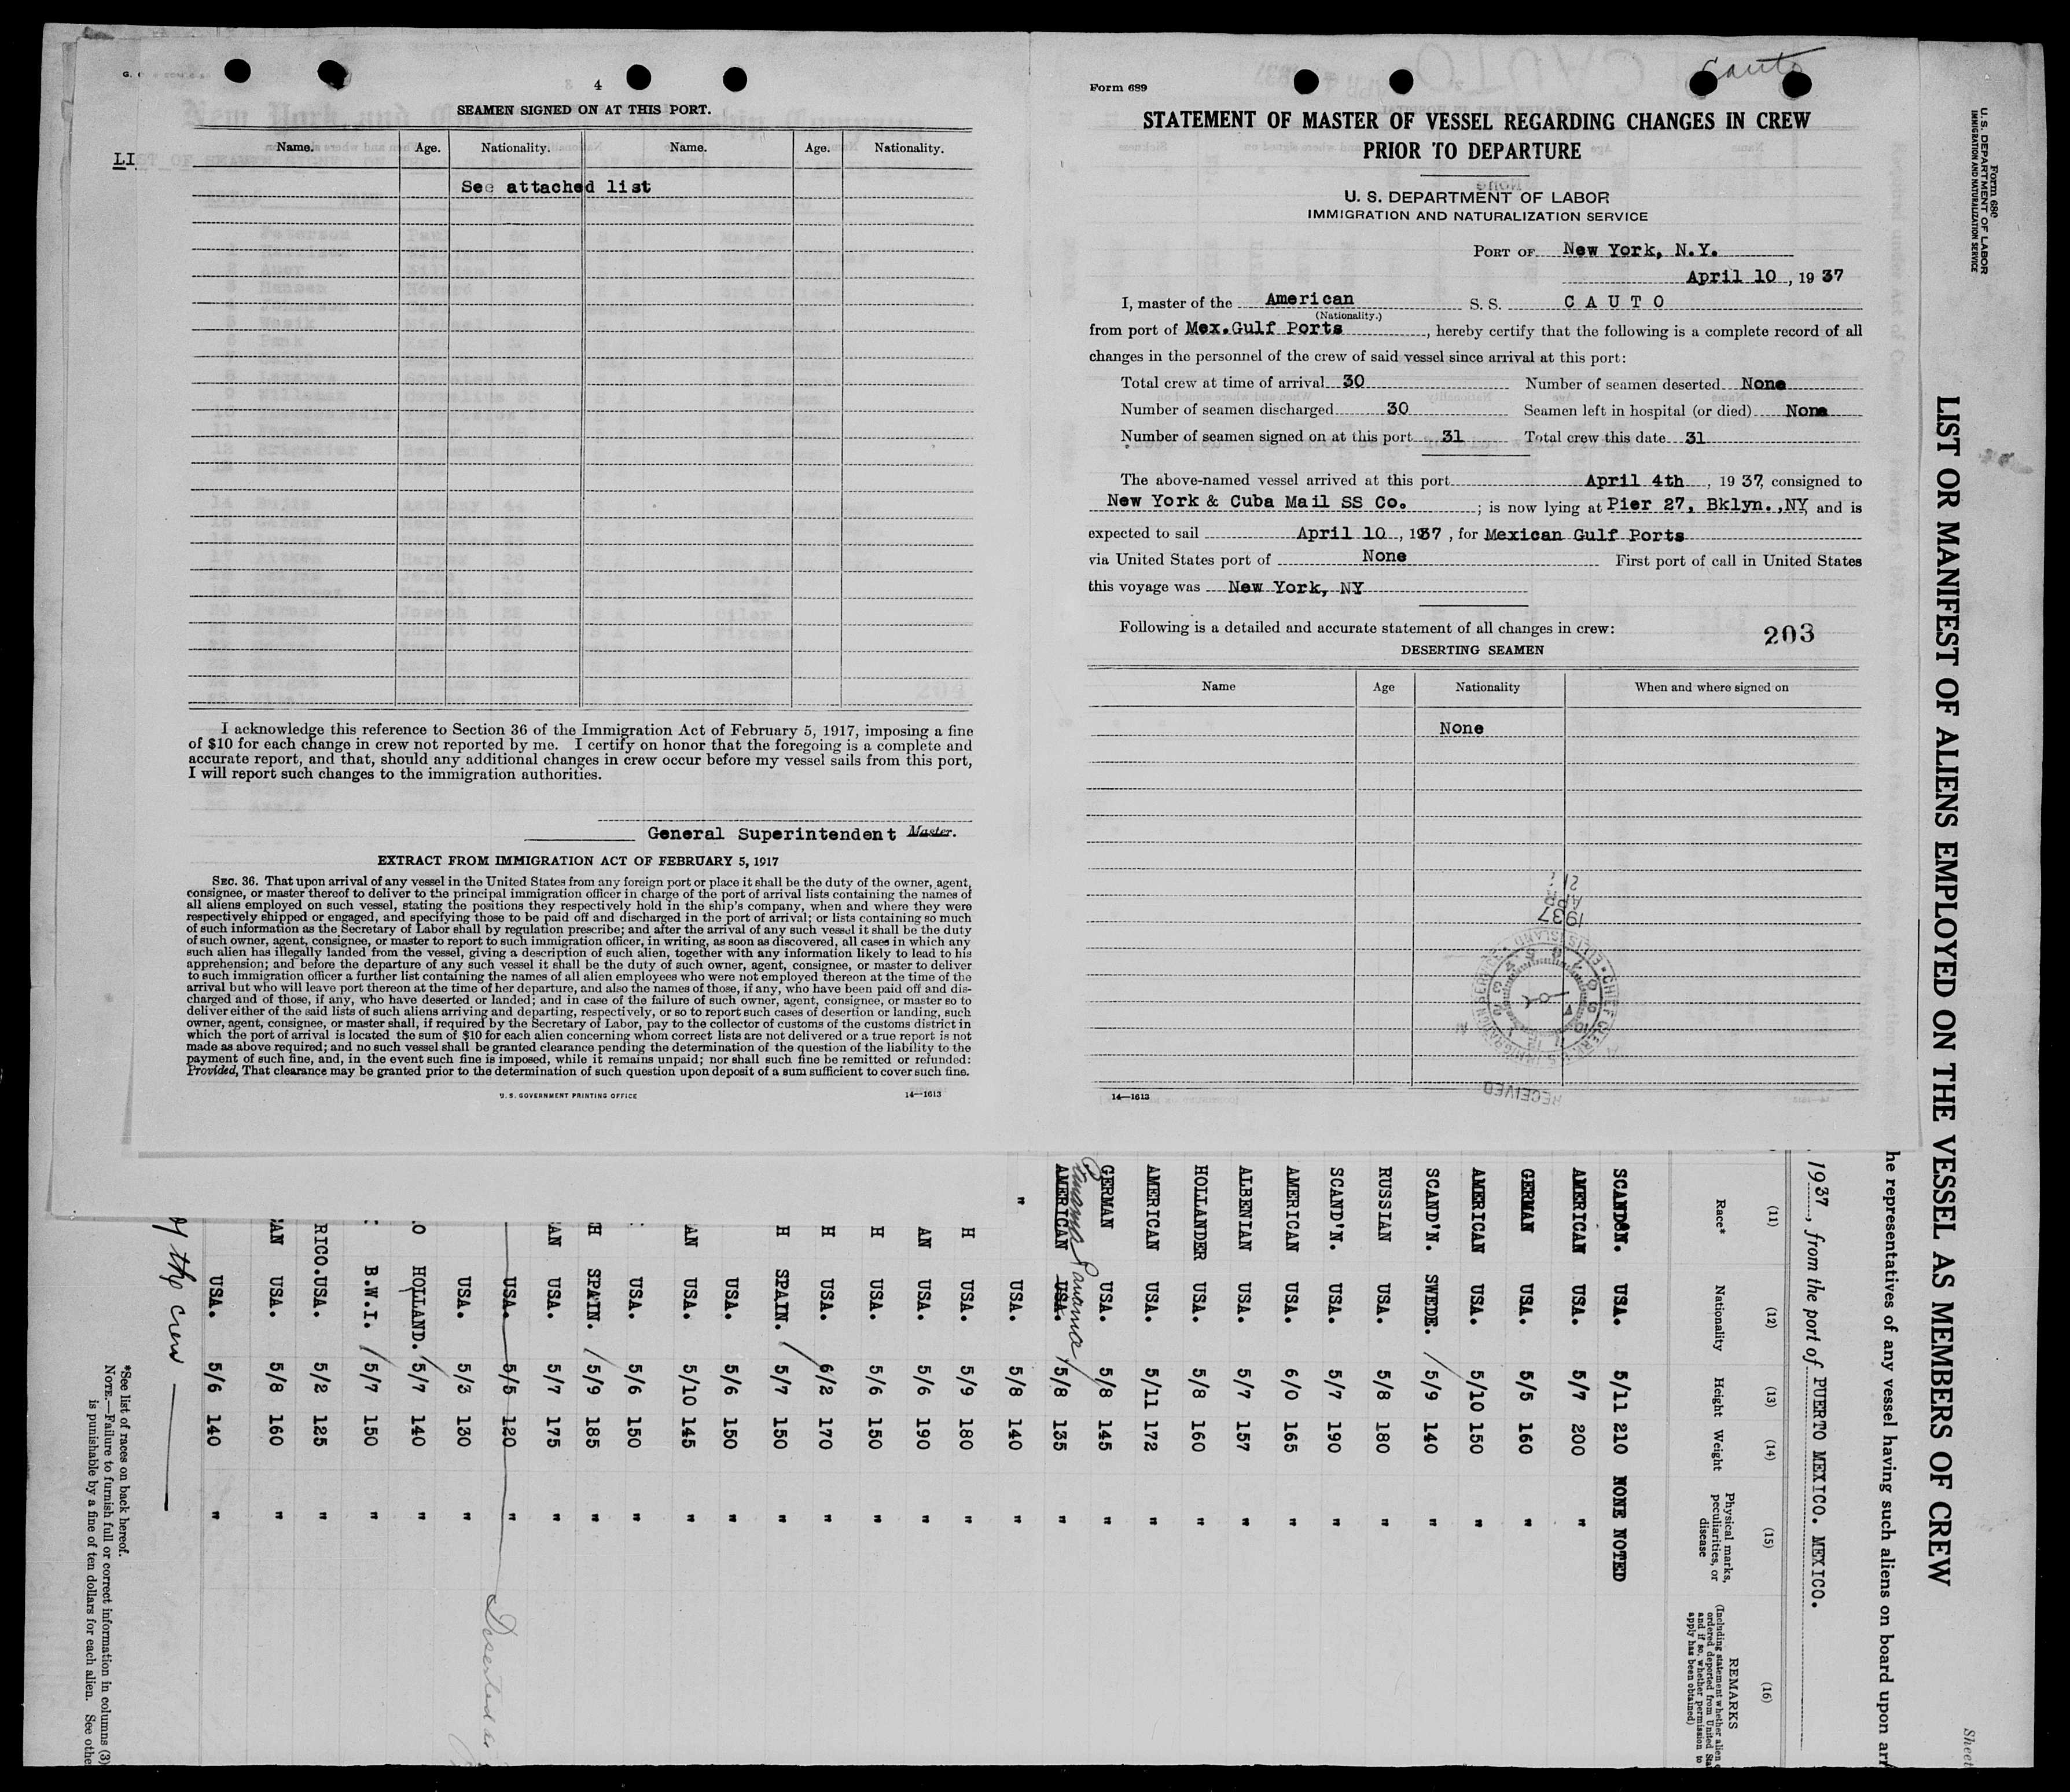 4
SEAMEN SIGNED ON AT THIS PORT.
Name. Age. Nationality. Name. Age. Nationality.
LI
See attached list
I acknowledge this reference to Section 36 of the Immigration Act of February 5, 1917, imposing a fine
of $10 for each change in crew not reported by me. I certify on honor that the foregoing is a complete and
accurate report, and that, should any additional changes in crew occur before my vessel sails from this port,
I will report such changes to the immigration authorities.
General Superintendent Master.
EXTRACT FROM IMMIGRATION ACT OF FEBRUARY 5, 1917
SEC. 36. That upon arrival of any vessel in the United States from any foreign port or place it shall be the duty of the owner, agent,
consignee, or master thereof to deliver to the principal immigration officer in charge of the port of arrival lists containing the names of
all aliens employed on such vessel, stating the positions they respectively hold in the ship's company, when and where they were
respectively shipped or engaged, and specifying those to be paid off and discharged in the port of arrival; or lists containing so much
of such information as the Secretary of Labor shall by regulation prescribe; and after the arrival of any such vessel it shall be the duty
of such owner, agent, consignee, or master to report to such immigration officer, in writing, as soon as discovered, all cases in which any
such alien has illegally landed from the vessel, giving a description of such alien, together with any information likely to lead to his
apprehension; and before the departure of any such vessel it shall be the duty of such owner, agent, consignee, or master to deliver
to such immigration officer a further list containing the names of all alien employees who were not employed thereon at the time of the
arrival but who will leave port thereon at the time of her departure, and also the names of those, if any, who have been paid off and dis-
charged and of those, if any, who have deserted or landed; and in case of the failure of such owner, agent, consignee, or master so to
deliver either of the said lists of such aliens arriving and departing, respectively, or so to report such cases of desertion or landing, such
owner, agent, consignee, or master shall, if required by the Secretary of Labor, pay to the collector of customs of the customs district in
which the port of arrival is located the sum of $10 for each alien concerning whom correct lists are not delivered or a true report is not
made as above required; and no such vessel shall be granted clearance pending the determination of the question of the liability to the
payment of such fine, and, in the event such fine is imposed, while it remains unpaid; nor shall such fine be remitted or refunded:
Provided, That clearance may be granted prior to the determination of such question upon deposit of a sum sufficient to cover such fine.
U. S. GOVERNMENT PRINTING OFFICE 14—1613
Cauto
Form 689
STATEMENT OF MASTER OF VESSEL REGARDING CHANGES IN CREW
PRIOR TO DEPARTURE
U. S. DEPARTMENT OF LABOR
IMMIGRATION AND NATURALIZATION SERVICE
PORT OF New York, N.Y.
April 10, 1937
I, master of the American S. S. C A U T O
(Nationality.)
from port of Mex.Gulf Ports, hereby certify that the following is a complete record of all
changes in the personnel of the crew of said vessel since arrival at this port:
Total crew at time of arrival 30 Number of seamen deserted None
Number of seamen discharged 30 Seamen left in hospital (or died) None
Number of seamen signed on at this port 31 Total crew this date 31
The above-named vessel arrived at this port April 4th, 1937, consigned to
New York & Cuba Mail SS Co. ; is now lying at Pier 27, Bklyn.,NY, and is
expected to sail April 10, 1937, for Mexican Gulf Ports
via United States port of None First port of call in United States
this voyage was New York, NY
Following is a detailed and accurate statement of all changes in crew: 203
DESERTING SEAMEN
Name Age Nationality When and where signed on
None
1937
APR
RECEIVED
14—1613
Form 680
U. S. DEPARTMENT OF LABOR
IMMIGRATION AND NATURALIZATION SERVICE
Sheet
LIST OR MANIFEST OF ALIENS EMPLOYED ON THE VESSEL AS MEMBERS OF CREW
he representatives of any vessel having such aliens on board upon arr
1937, from the port of PUERTO MEXICO. MEXICO.
(11) (12) (13) (14) (15) (16)
Race* Nationality Height Weight Physical marks, peculiarities, or disease REMARKS
(Including statement whether alien
ordered deported from United Sta
and if so, whether permission to
apply has been obtained)
SCANDN. USA. 5/11 210 NONE NOTED
AMERICAN USA. 5/7 200 "
GERMAN USA. 5/5 160 "
AMERICAN USA. 5/10 150 "
SCAND'N. SWEDE. 5/9 140 "
RUSSIAN USA. 5/8 180 "
SCAND'N. USA. 5/7 190 "
AMERICAN USA. 6/0 165 "
ALBENIAN USA. 5/7 157 "
HOLLANDER USA. 5/8 160 "
AMERICAN USA. 5/11 172 "
GERMAN USA. 5/8 145 "
Panama Panama
AMERICAN USA. 5/8 135 "
" USA. 5/8 140 "
H USA. 5/9 180 "
AN USA. 5/6 190 "
H USA. 5/6 150 "
H USA. 6/2 170 "
H SPAIN. 5/7 150 "
USA. 5/6 150 "
AN USA. 5/10 145 "
USA. 5/6 150 "
H SPAIN. 5/9 185 "
AN USA. 5/7 175 "
USA. 5/5 120 " Deserted
USA. 5/3 130 "
O HOLLAND. 5/7 140 "
B.W.I. 5/7 150 "
RICO. USA. 5/2 125 "
AN USA. 5/8 160 "
USA. 5/6 140 "
of the crew
*See list of races on back hereof.
NOTE.—Failure to furnish full or correct information in columns (3)
is punishable by a fine of ten dollars for each alien. See othe